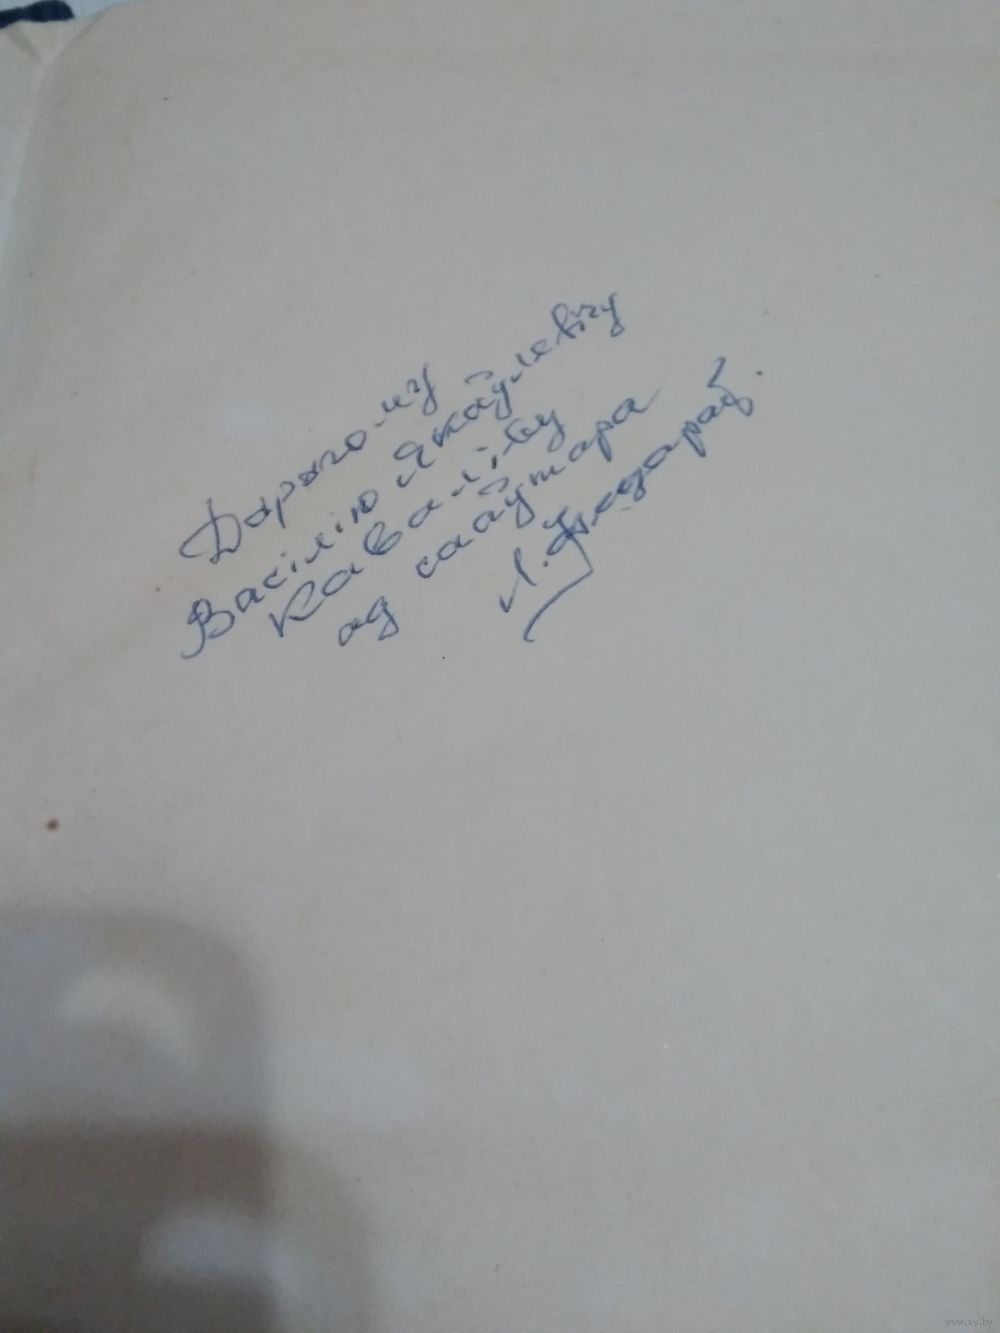 Дарагому
Васілію Якаўлевічу
Кавалёву
ад сааўтара
Л.
www.ay.by